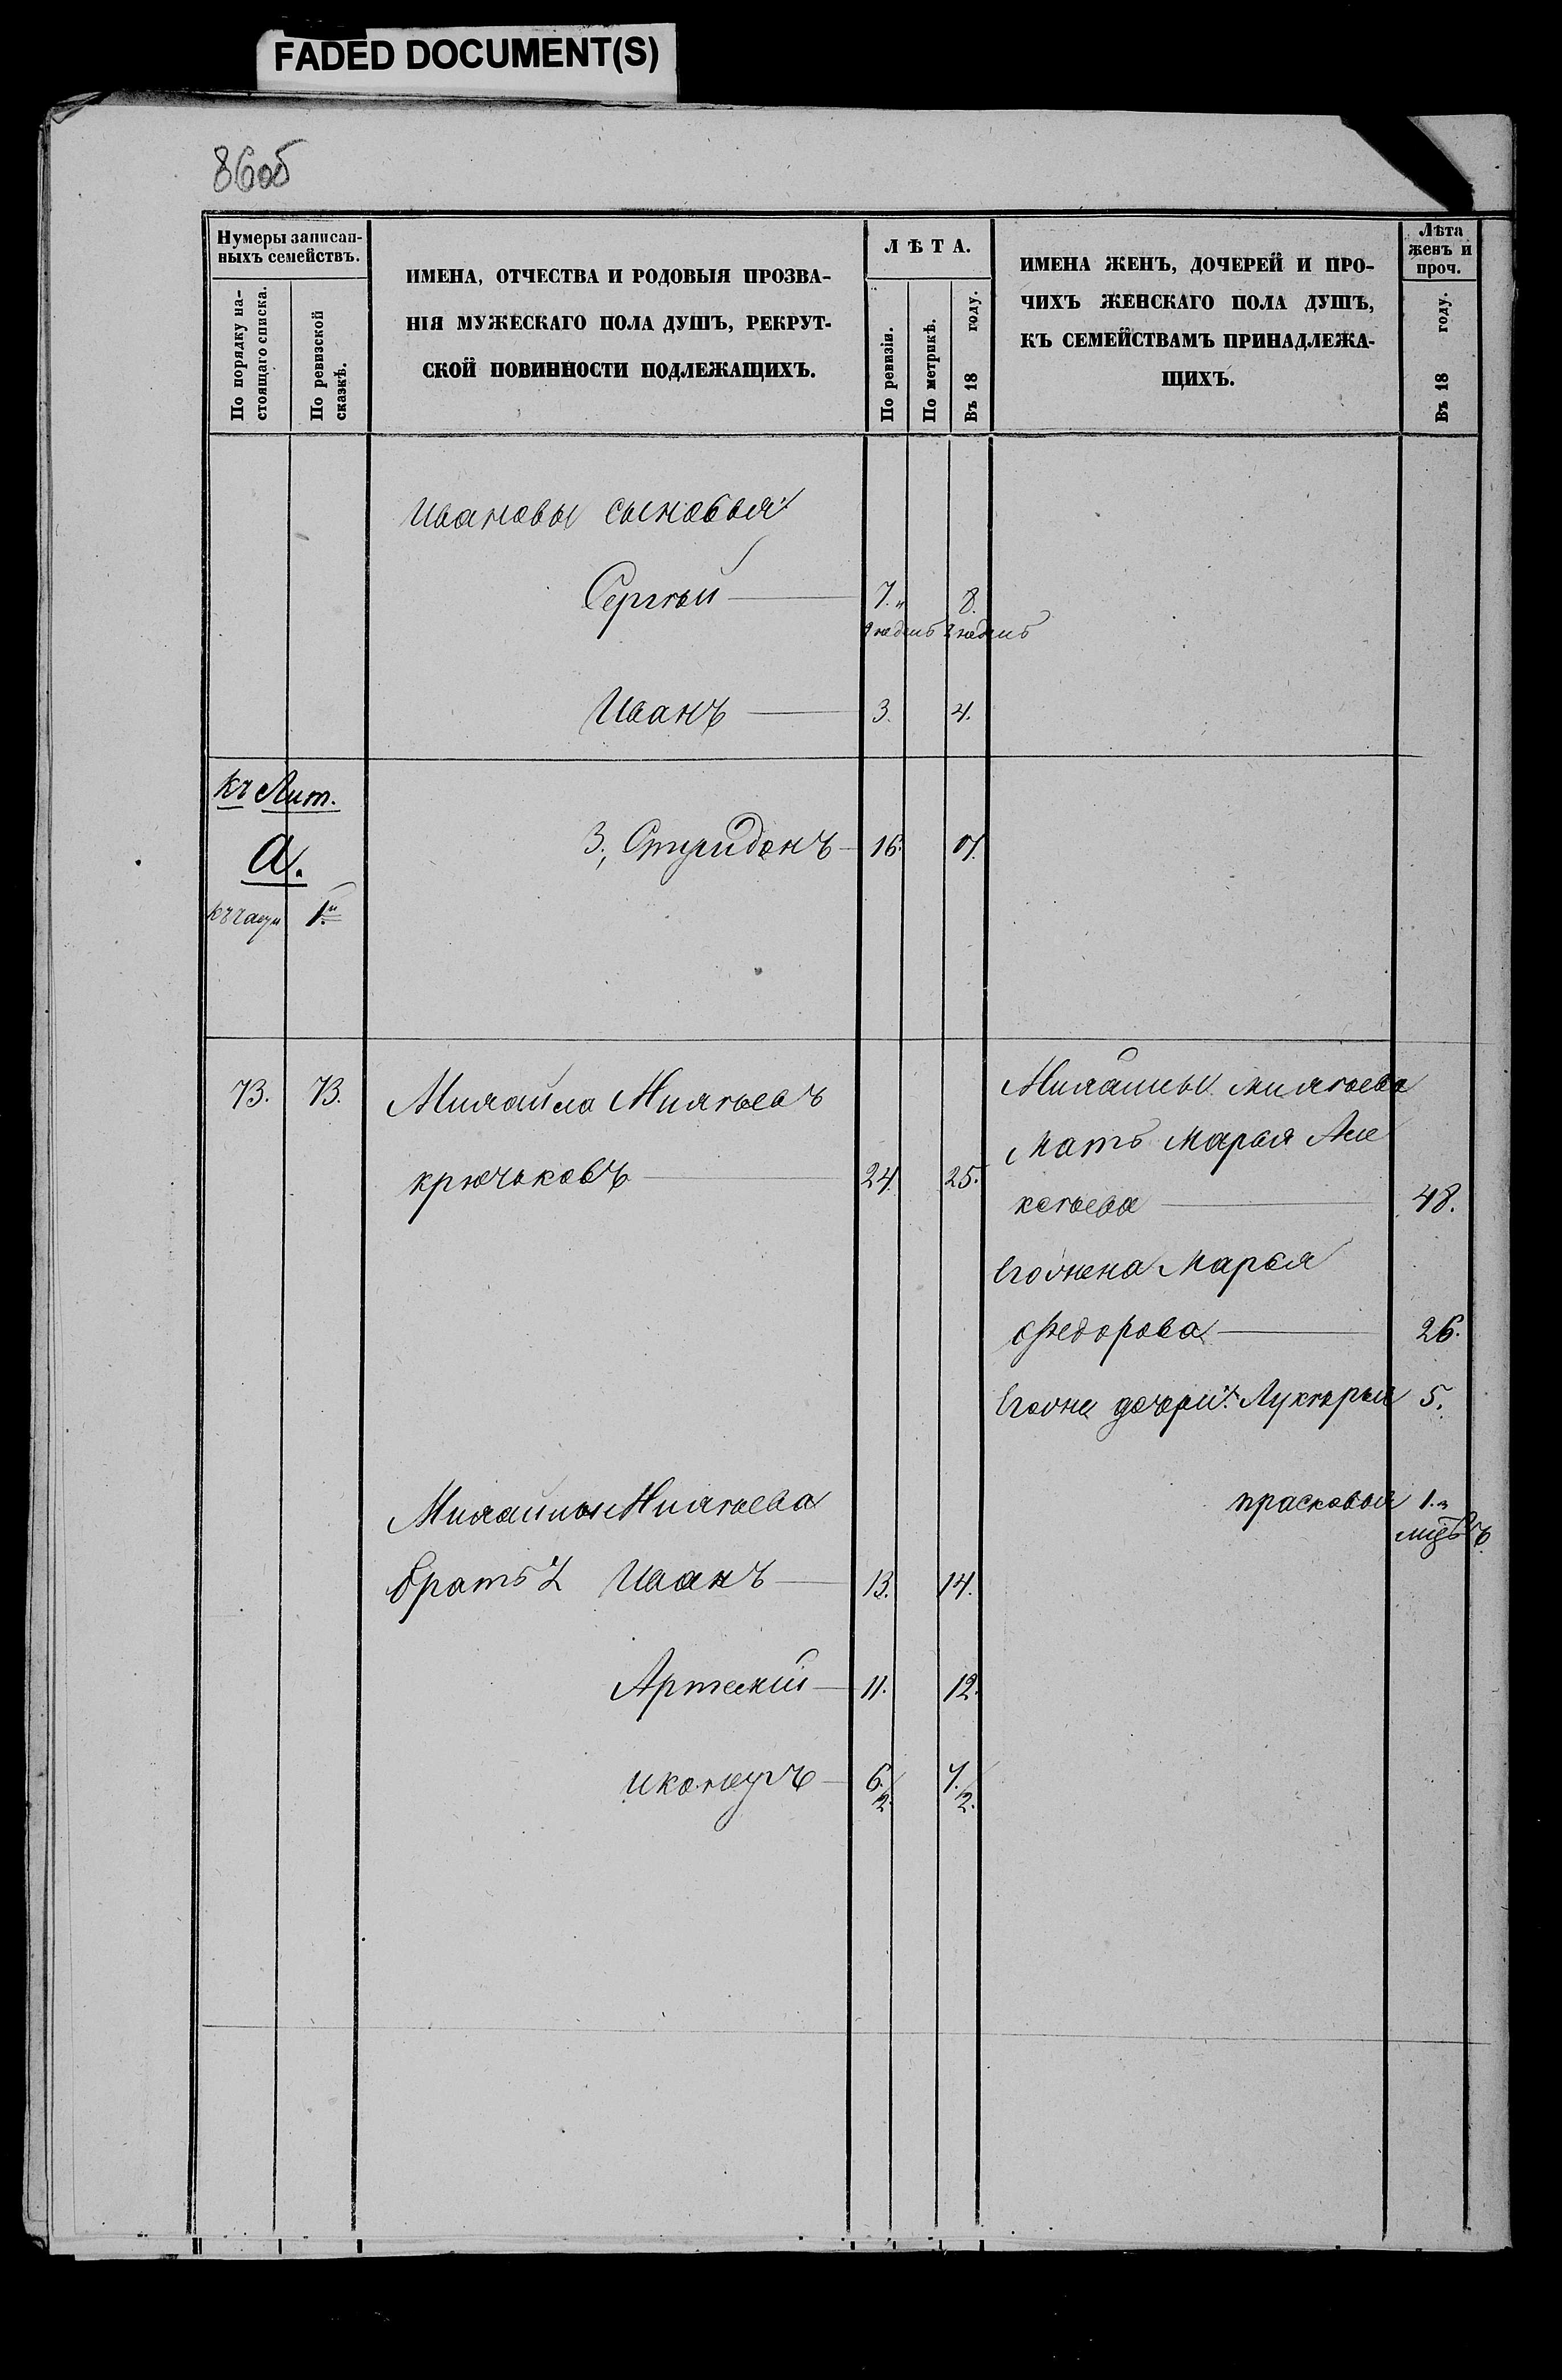 FADED DOCUMENT(S)
86об
Нумеры записан-
ныхъ семействъ.
По порядку на-
стоящаго списка.
По ревизской
сказкѣ.
ИМЕНА, ОТЧЕСТВА И РОДОВЫЯ ПРОЗВА-
НІЯ МУЖЕСКАГО ПОЛА ДУШЪ, РЕКРУТ-
СКОЙ ПОВИННОСТИ ПОДЛЕЖАЩИХЪ.
ЛѢТА.
По ревизіи.
По метрикѣ.
Въ 18 году.
ИМЕНА ЖЕНЪ, ДОЧЕРЕЙ И ПРО-
ЧИХЪ ЖЕНСКАГО ПОЛА ДУШЪ,
КЪ СЕМЕЙСТВАМЪ ПРИНАДЛЕЖА-
ЩИХЪ.
Лѣта
женъ и
проч.
Въ 18 году.
Ивановы сыновья
Сергѣй 7. 8.
недель 2 недель
Иванъ 3. 4.
къ Лит.
А.
3, Спиридонъ 16. 17.
1й
73. 73. Михайла Михѣевъ
крючьковъ 24. 25.
Михайлы Михѣева
Мать Марья Але
ксѣева 48.
Его жена Марья
Федорова 26.
Его дочери: Лукѣрья 5.
прасковья 1.
Михайлы Михѣева
братья Иванъ 13. 14.
Артемій 11. 12.
6. 1/2. 7. 1/2.